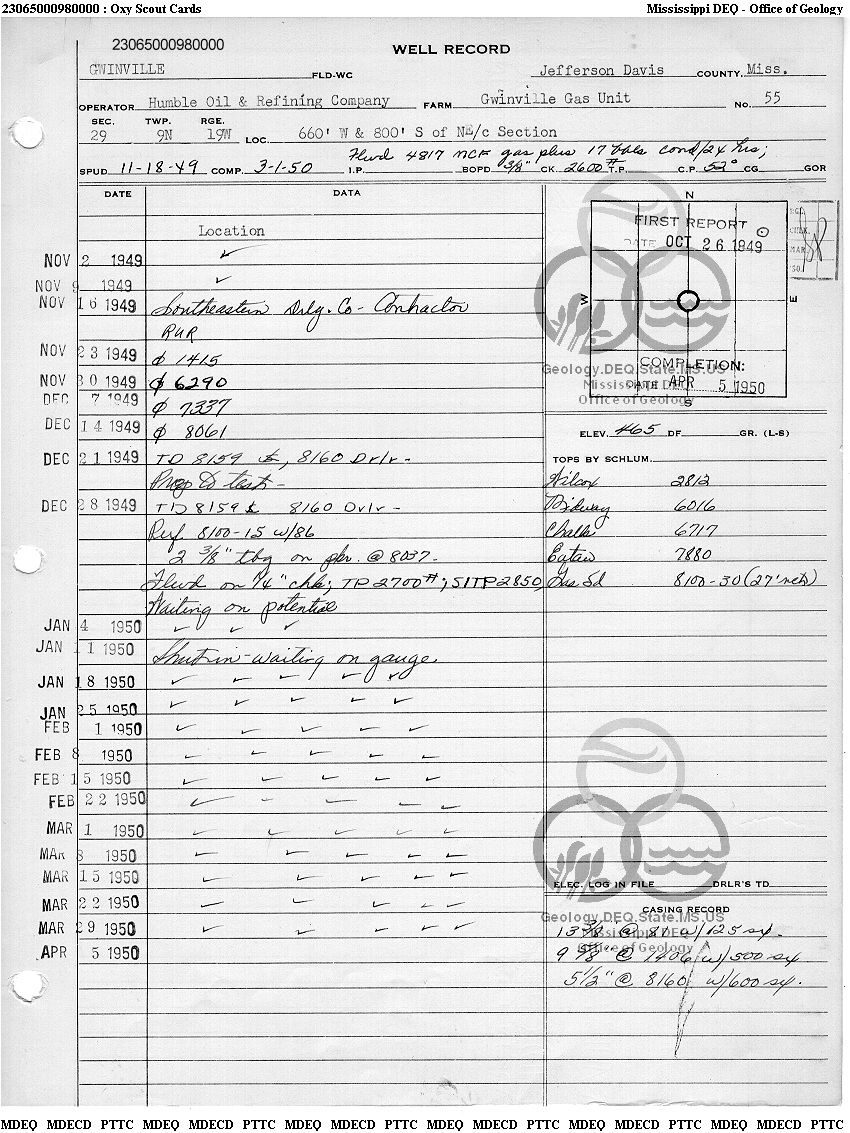 23065000980000 : Oxy Scout Cards Mississippi DEQ - Office of Geology
23065000980000
WELL RECORD
GWINVILLE FLD-WC Jefferson Davis COUNTY Miss.
OPERATOR Humble Oil & Refining Company FARM Gwinville Gas Unit No. 55
SEC. TWP. RGE.
29 9N 19W LOC. 660' W & 800' S of NE/c Section
Flwd 4817 MCF gas plus 17 bbls cond/24 hrs;
SPUD 11-18-49 COMP. 3-1-50 I.P. BOPD 3/8" CK. 2600# T.P. C.P. 52° CG GOR
DATE DATA
Location
NOV 2 1949 ✓
NOV 9 1949 ✓
NOV 16 1949 Southeastern Drlg. Co - Contractor
RUR
NOV 23 1949 ϕ 1415
NOV 30 1949 ϕ 6290
DEC 7 1949 ϕ 7337
DEC 14 1949 ϕ 8061
DEC 21 1949 TD 8159 , 8160 Drlr -
Prep to test -
DEC 28 1949 TD 8159 8160 Drlr -
Perf 8100-15 w/86
2 3/8" tbg on pkr. @ 8037.
Flwd on 1/4" chk; TP 2700#; SITP 2850,
Waiting on potential
JAN 4 1950 ✓ ✓ ✓
JAN 11 1950 Shut in - waiting on gauge.
JAN 18 1950 ✓ ✓ ✓ ✓ ✓
JAN 25 1950 ✓ ✓ ✓ ✓ ✓
FEB 1 1950 ✓ ✓ ✓ ✓ ✓
FEB 8 1950 ✓ ✓ ✓ ✓ ✓
FEB 15 1950 ✓ ✓ ✓ ✓ ✓
FEB 22 1950 ✓ ✓ ✓ ✓ ✓
MAR 1 1950 ✓ ✓ ✓ ✓ ✓
MAR 8 1950 ✓ ✓ ✓ ✓ ✓
MAR 15 1950 ✓ ✓ ✓ ✓ ✓
MAR 22 1950 ✓ ✓ ✓ ✓ ✓
MAR 29 1950 ✓ ✓ ✓ ✓ ✓
APR 5 1950
N
FIRST REPORT
DATE OCT 26 1949
W E
COMPLETION:
DATE APR 5 1950
S
Geology.DEQ.State.MS.US
Mississippi DEQ
Office of Geology
ELEV. 465 DF GR. (L-S)
TOPS BY SCHLUM.
Wilcox 2812
Midway 6016
Chalk 6717
Eutaw 7880
Gas Sd 8100-30 (27' net)
ELEC. LOG IN FILE DRLR'S TD
CASING RECORD
Geology.DEQ.State.MS.US
Mississippi DEQ
Office of Geology
13 3/8" @ 81 w/125 sx.
9 5/8" @ 1406 w/500 sx
5 1/2" @ 8160 w/600 sx.
MDEQ MDECD PTTC MDEQ MDECD PTTC MDEQ MDECD PTTC MDEQ MDECD PTTC MDEQ MDECD PTTC MDEQ MDECD PTTC